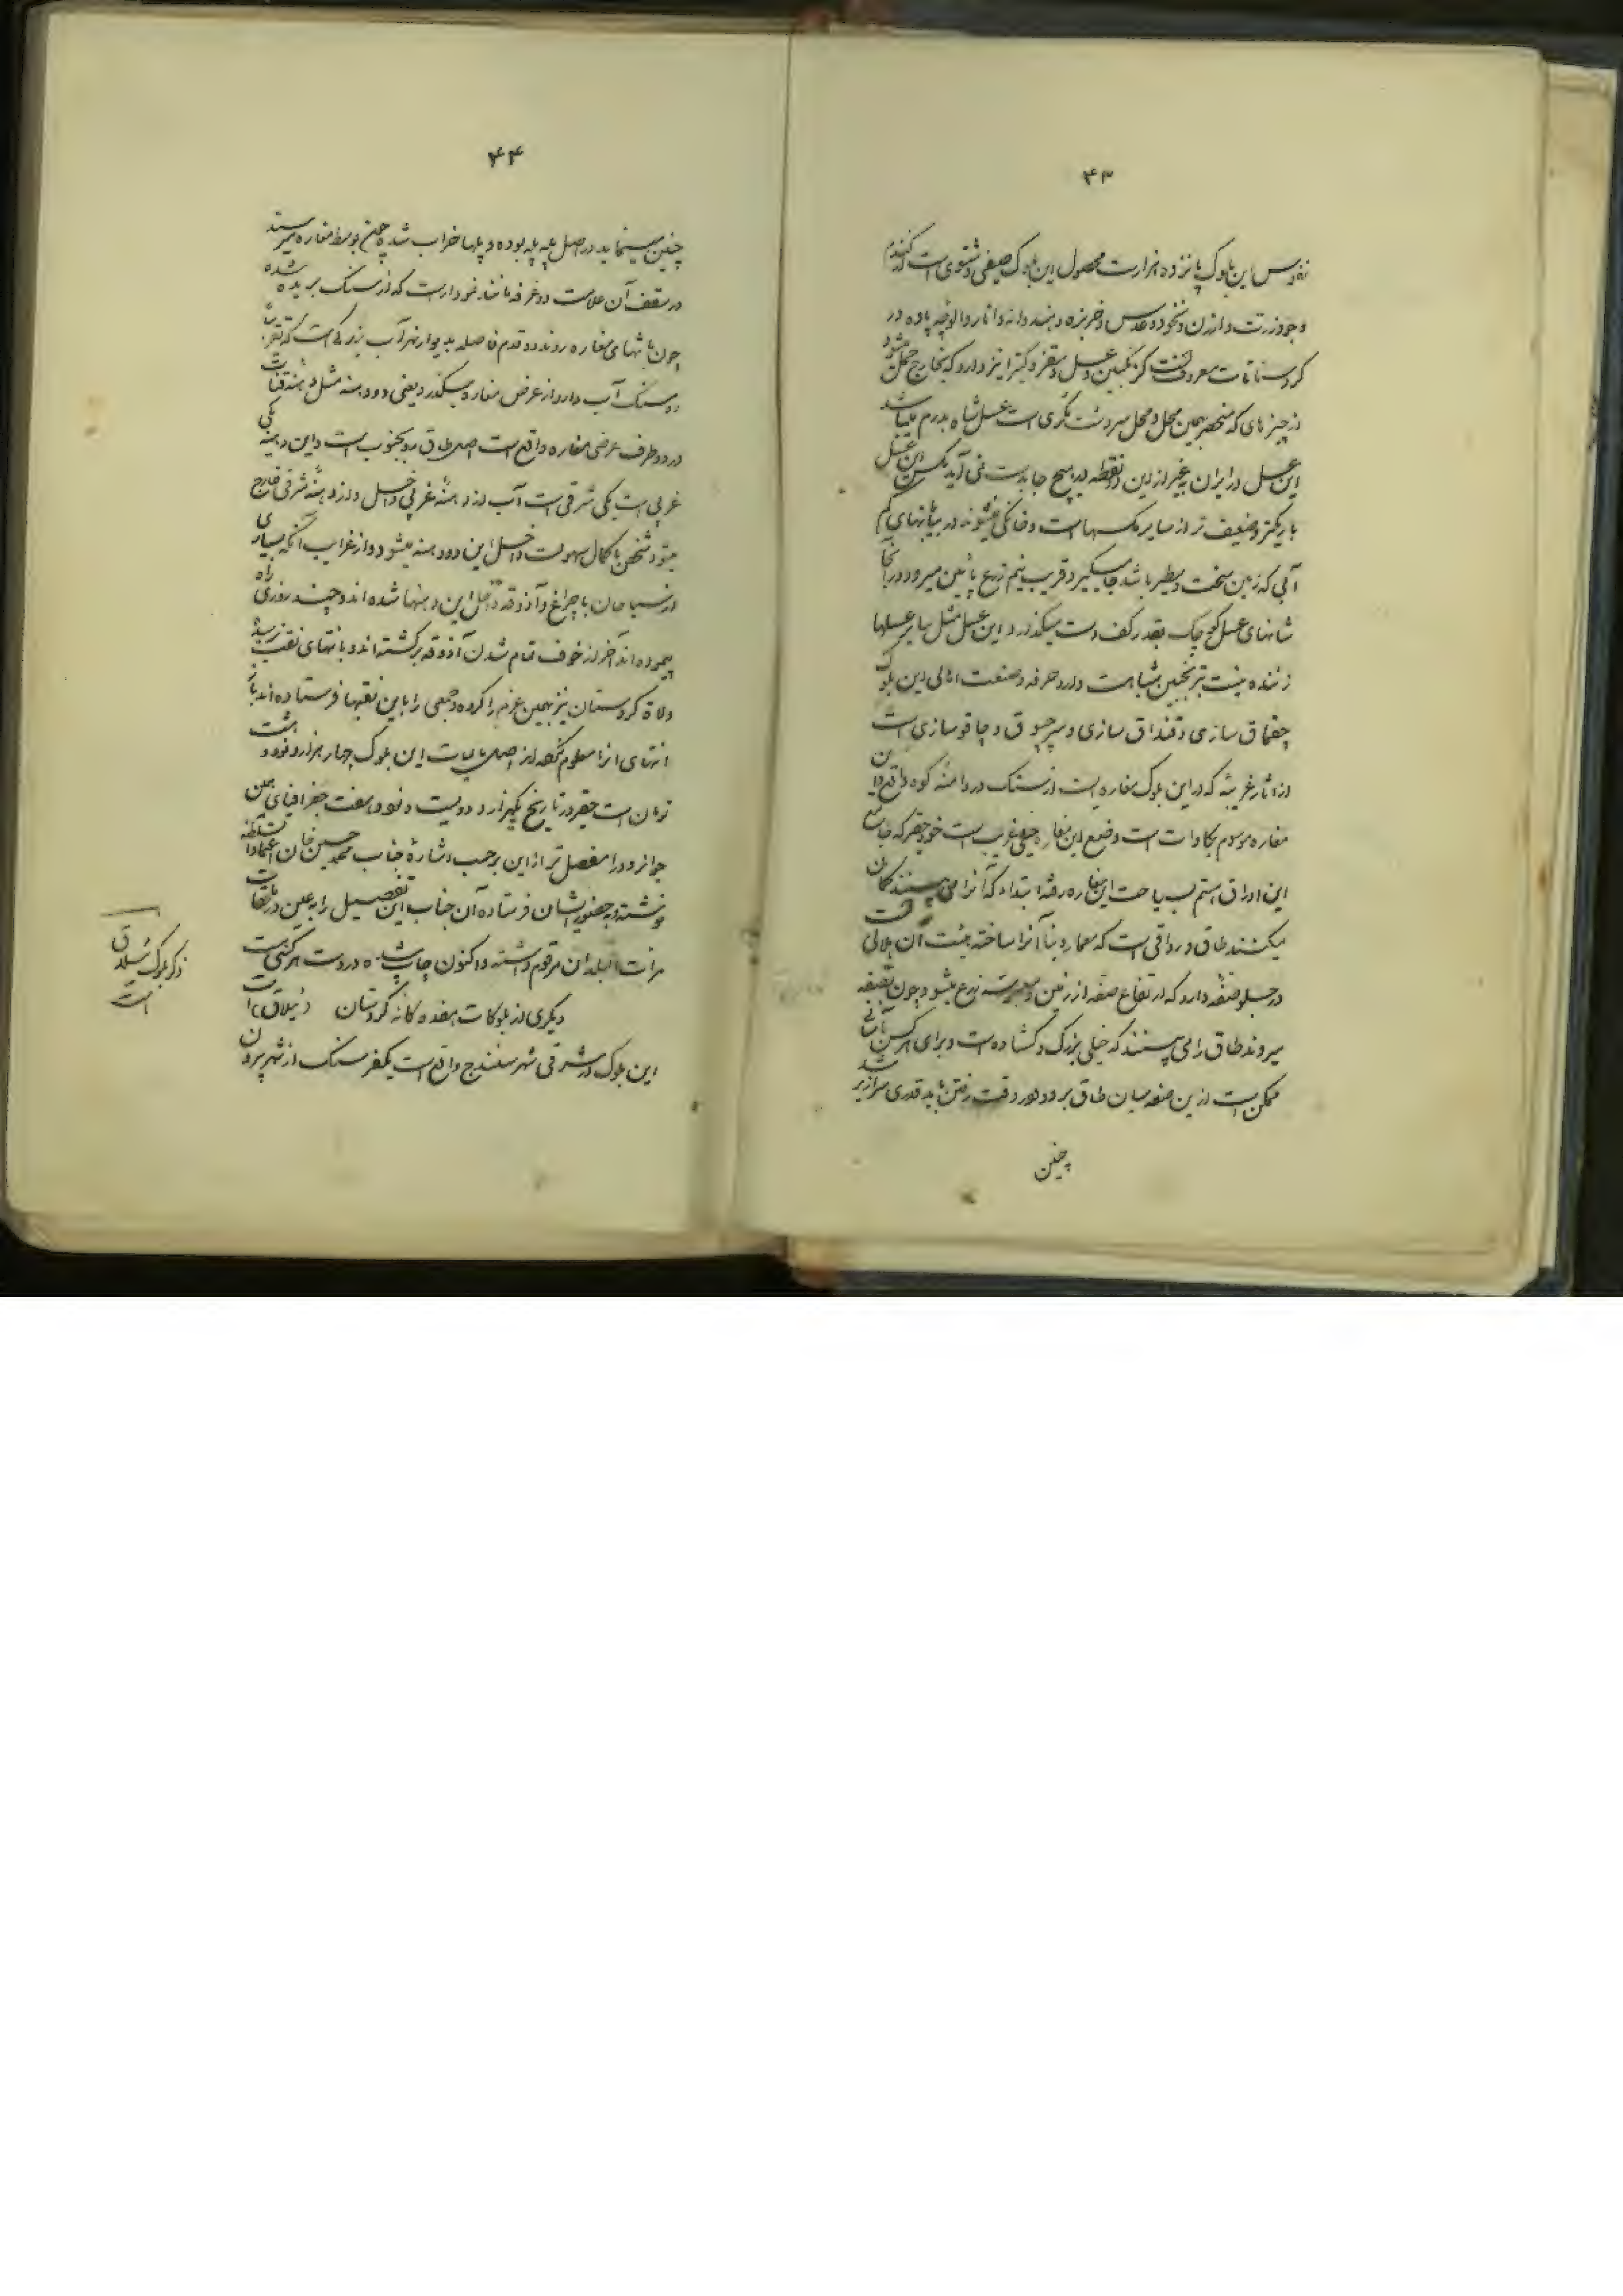 ۴۳
نفوس این بلوک پانزده هزار است محصول این بلوک صیفی و شتوی است گندم
و جو و زرت و ارزن و نخود و عدس و خربزه و هندوانه و انار و الوچه پاوه در
کردستانات معروف است گزنگبین و عسل و سقز و کتیرا نیز دارد که بخارج حمل میشود
از چیزهای که منحصر بهمین محل و محل سردشت مکری است عسل شاه بدرم میباشد
این عسل در ایران بغیر از این دو نقطه در هیچ جا بدست نمی آید مکس این عسل
باریکتر و ضعیف تر از سایر مکسهاست و خانکی نمیشوند در بیابانهای کم
آبی که زمین سخت و سطبر باشد جا میگیرد قریب نیم زرع پائین میرود در آنجا
شانهای عسل کوچک بقدر کف دست میگذارد این عسل مثل سایر عسلها
زننده نیست بترنجبین شباهت دارد حرفه و صنعت اهالی این بلوک
چقماق سازی و قنداق سازی و سرچپوق و چاقو سازی است
از اثار غریبه که در این بلوک مغاره ایست از سنک در دامنه کوه واقع و این
مغاره موسوم بکاوات است و وضع این مغاره خیلی غریب است خود حقیر که جامع
این اوراق هستم بسیاحت این مغاره رفته ابتداء که آنرا می بینند کمان
میکنند طاق و رواقی است که معمار و بنا آنرا ساخته هیئت آن هلالی است
در جلو صفه دارد که ارتفاع صفه از زمین سه زرع میشود چون بصفه
میروند طاق را می بینند که خیلی بزرک و کشاده است و برای هر کس بآسانی
ممکن است از این صفه میان طاق برود در وقت رفتن باید قدری سرازیر شد
چنین
۴۴
چنین مینماید در اصل پله پله بوده و پلها خراب شده چون بوسط مغاره میرسند
در سقف آن علامت دو غرفه مانند نمودار است که از سنک بریده شده
چون بانتهای مغاره روند دو قدم فاصله بدیوار نهر آب بزرکی است که تقریباً
دو سنک آب دارد از عرض مغاره میگذرد یعنی دو دهنه مثل دهنه قنات
در دو طرف عرض مغاره واقع است اصل طاق رو بجنوب است و این دهنه یکی
غربی است یکی شرقی است آب از دهنه غربی داخل و از دهنه شرقی خارج
میشود شخص با کمال سهولت داخل این دو دهنه میشود و از غرایب آنکه بسیاری
از سیاحان با چراغ و آذوقه داخل این دهنها شده اند و چند روزی راه
پیموده اند آخر از خوف تمام شدن آذوقه برکشته اند و بانتهای نقب نرسیده
ولاة کردستان نیز همین عزم را کرده و جمعی را باین نقبها فرستاده اند باز
انتهای آنرا معلوم نکرده اند اصل مالیات این بلوک چهار هزار و نود و هشت
تومان است حقیر در تاریخ یکهزار و دویست و نود و هفت جغرافیای همین
جوانرود را مفصل تر از این برحسب اشارهٔ جناب محمد حسین خان اعتمادالسلطنه
نوشته و بحضور ایشان فرستاده آن جناب این تفصیل را بعین در طبقات
مرآت البلدان مرقوم داشته و اکنون چاپ شده در دست هر کس هست
دیکری از بلوکات هفده کانه کردستان (ئیلاق) است
این بلوک در مشرقی شهر سنندج واقع است یکفرسنک از شهر بیرون
ذکر بلوک ئیلاق
است